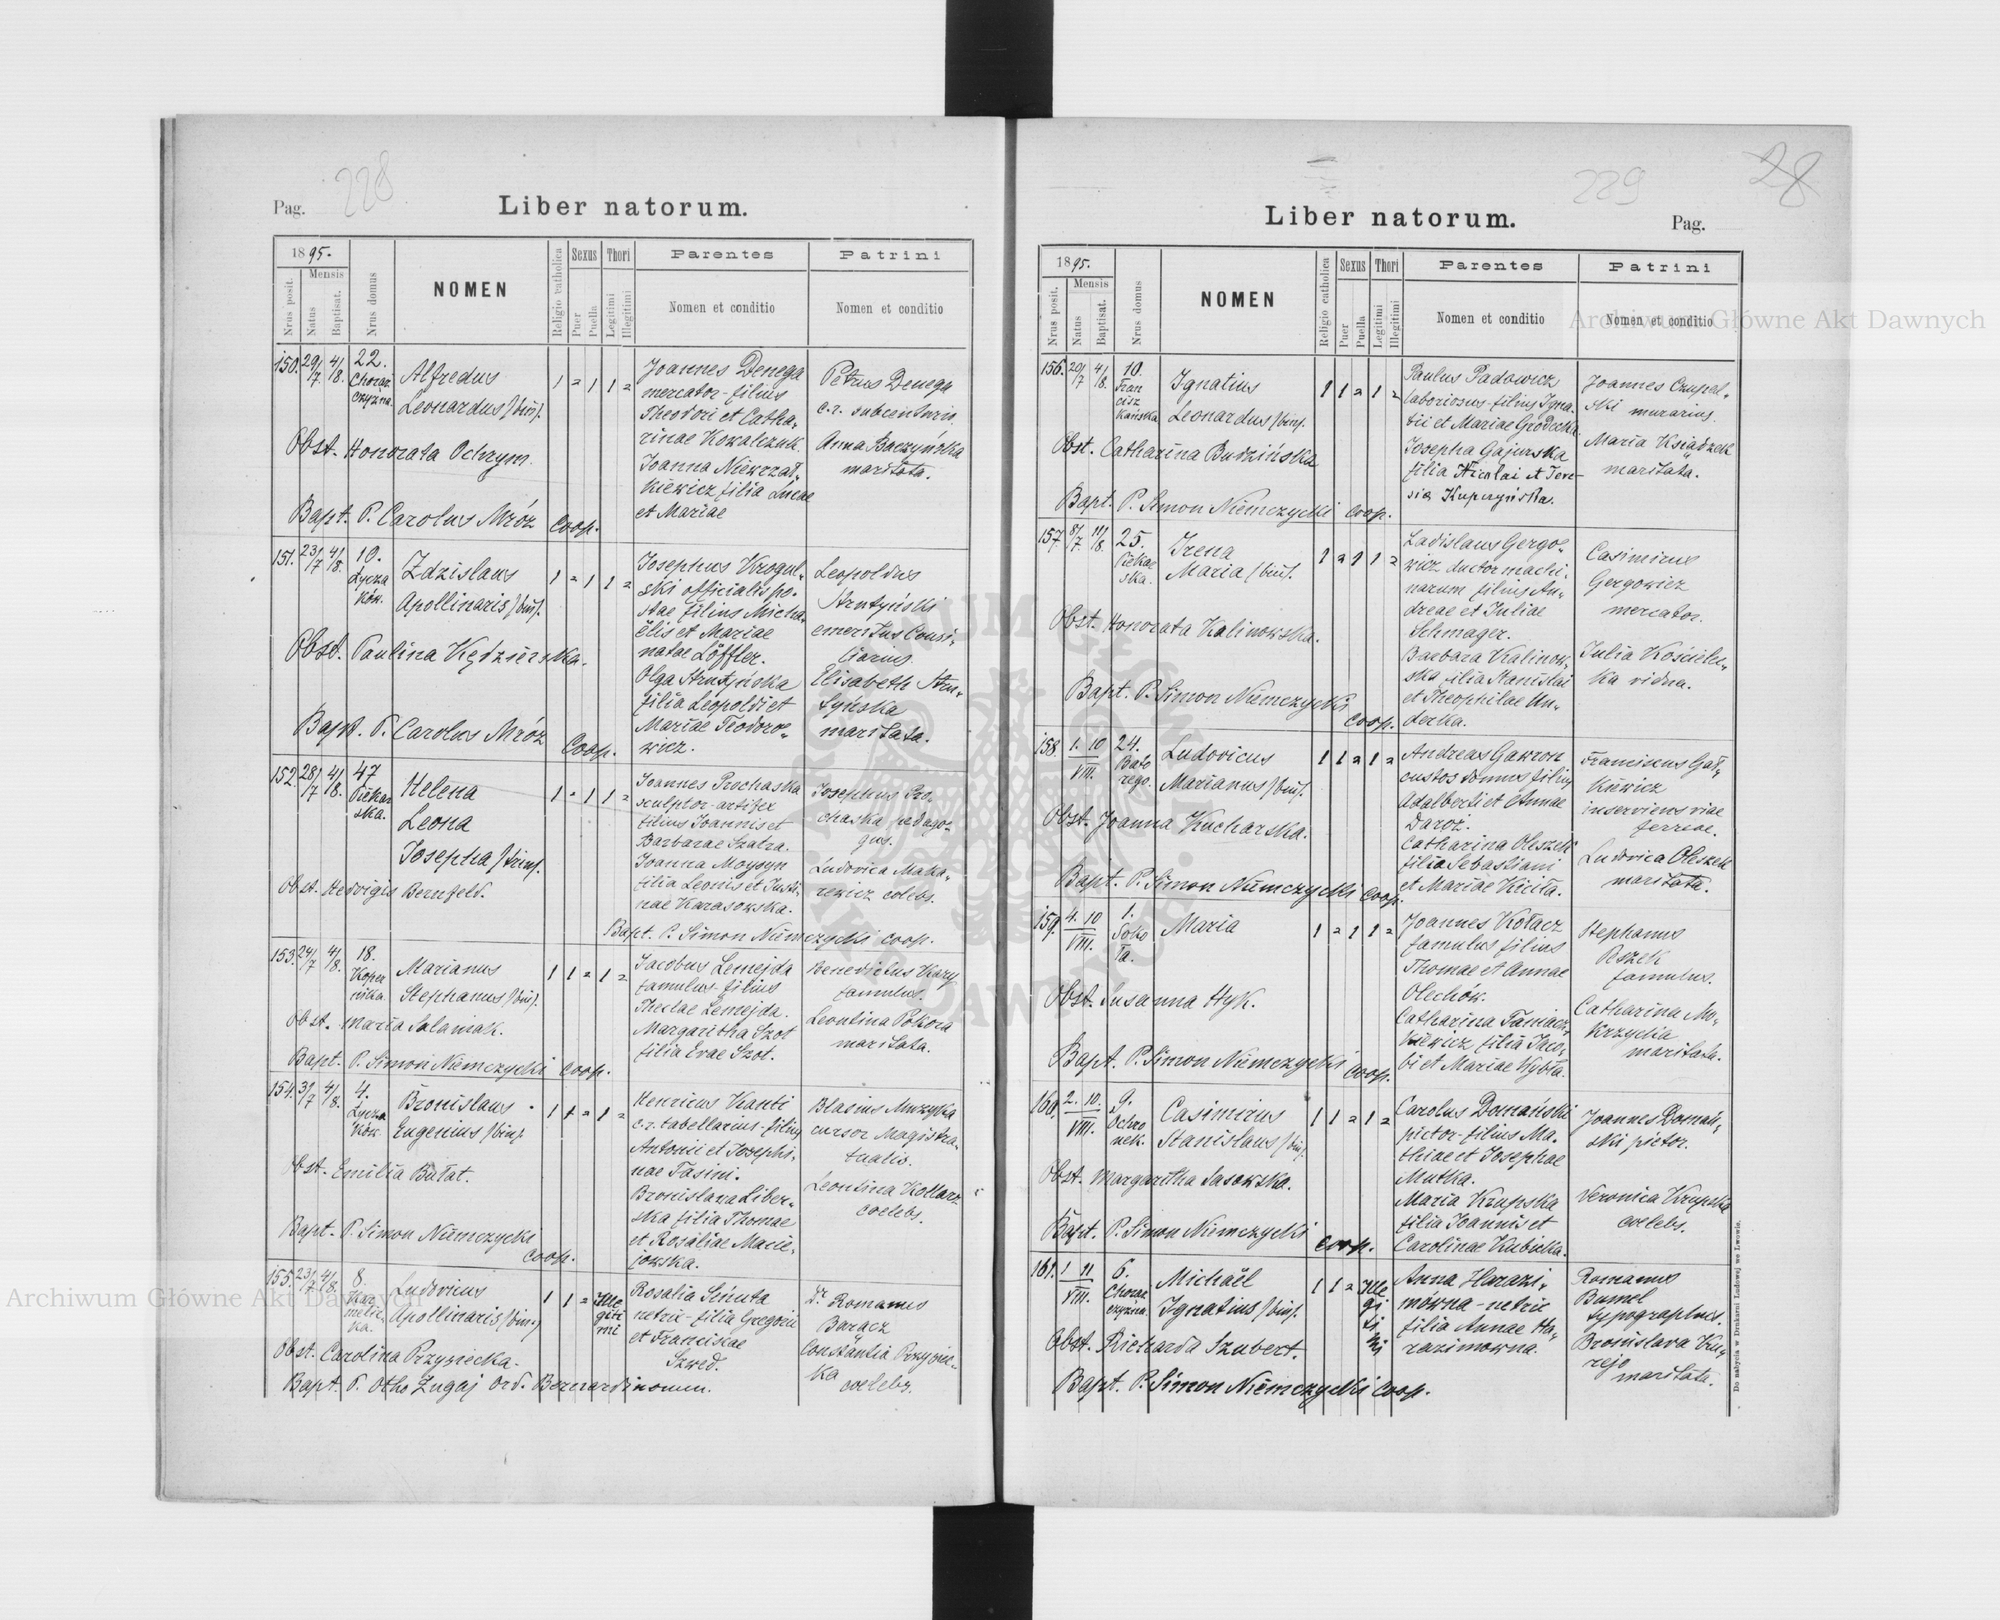 Pag. 228
Liber natorum.
1895.
Mensis
Nrus posit.
Natus
Baptisat.
Nrus domus
NOMEN
Religio catholica
Sexus
Puer
Puella
Thori
Legitimi
Illegitimi
Parentes
Nomen et conditio
Patrini
Nomen et conditio
150. 29/7 4/8. 22.
Chorąż
czyzna.
Alfredus
Leonardus /bin/.
1 = 1 1 =
Obst. Honorata Ochrym.
Bapt. P. Carolus Mróz coop.
Joannes Denega
mercator - filius
Theodori et Catha-
rinae Kowalczuk.
Joanna Niewrzał-
kiewicz filia Lucae
et Mariae
Petrus Denega
c.r. subcenturio.
Anna Baczyńska
maritata.
151. 23/7 4/8. 10.
Łycza
ków.
Zdzislaus
Apollinaris /bin/.
1 = 1 1 =
Obst. Paulina Kędzierska.
Bapt. P. Carolus Mróz coop.
Josephus Krogul-
ski officialis po-
stae filius Micha-
ëlis et Mariae
natae Löffler.
Olga Strutyńska
filia Leopoldi et
Mariae Teodoro-
wicz.
Leopoldus
Strutyński
emeritus Consi-
liarius.
Elisabeth Stru-
tyńska
maritata.
152. 28/7 4/8. 47
Piekar
ska.
Helena
Leona
Josepha /trin/.
1 = 1 1 =
Obst. Hedvigis Bernfeld.
Joannes Prochaska
sculptor-artifex
filius Joannis et
Barbarae Szatra.
Joanna Moysyn
filia Leonis et Justi-
nae Karasowska.
Josephus Pro-
chaska pedago-
gus.
Ludovica Maka-
rewicz coelebs.
Bapt. P. Simon Niemczycki coop.
153. 24/7 4/8. 18.
Koper
nika.
Marianus
Stephanus /bin/.
1 1 = 1 =
Obst. Maria Salamak.
Bapt. P. Simon Niemczycki coop.
Jacobus Lemejda
famulus - filius
Theclae Lemejda.
Margaritha Szot
filia Evae Szot.
Benedictus Kary
famulus.
Leontina Pokora
maritata.
154. 31/7 4/8. 4.
Łycza
ków.
Bronislaus
Eugenius /bin/.
1 1 = 1 =
Obst. Emilia Bułat.
Bapt. P. Simon Niemczycki
coop.
Henricus Kanti
c.r. tabellarius - filius
Antonii et Josephi-
nae Tasini.
Bronislava Liber-
ska filia Thomae
et Rosaliae Macie-
jowska.
Blasius Muzyka
cursor Magistra-
tualis.
Leontina Kollarz
coelebs.
155. 23/7 4/8. 8.
Kar
melic-
ka.
Ludovicus
Apollinaris /bin./
1 1 = Ille
giti
mi
Obst. Carolina Przysiecka.
Bapt. P. Otho Zugaj Ord. Bernardinorum.
Rosalia Sénuta
netrix - filia Gregorii
et Franciscae
Szwed.
Dr. Romanus
Barącz
Constantia Przysiec-
ka
coelebs.
229 28
Liber natorum.
Pag.
1895.
Mensis
Nrus posit.
Natus
Baptisat.
Nrus domus
NOMEN
Religio catholica
Sexus
Puer
Puella
Thori
Legitimi
Illegitimi
Parentes
Nomen et conditio
Patrini
Nomen et conditio
156. 29/7 4/8. 10.
Fran
cisz
kańska
Ignatius
Leonardus /bin/.
1 1 = 1 =
Obst. Catharina Budzińska
Bapt. P. Simon Niemczycki coop.
Paulus Padowicz
laboriosus - filius Igna-
tii et Mariae Grodecka.
Josepha Gajurska
filia Nicolai et Tere-
siae Kupczyńska.
Joannes Czupel-
ski murarius.
Maria Książek
maritata.
157. 8/7 11/8. 25.
Piekar
ska.
Irena
Maria /bin/.
1 = 1 1 =
Obst. Honorata Kalinowska.
Bapt. P. Simon Niemczycki
coop.
Ladislaus Gergo-
wicz ductor machi-
narum filius An-
dreae et Juliae
Schmager.
Barbara Kalinow-
ska filia Stanislai
et Theophilae Un-
derka.
Casimirus
Gergowicz
mercator.
Julia Kościelec-
ka vidua.
158. 1. 10 VIII. 24.
Bato
rego.
Ludovicus
Marianus /bin/.
1 1 = 1 =
Obst. Joanna Kucharska.
Bapt. P. Simon Niemczycki coop.
Andreas Gawron
custos domus filius
Adalberti et Annae
Daroż.
Catharina Oleszek
filia Sebastiani
et Mariae Kiciła.
Franciscus Gał-
kiewicz
inserviens viae
ferreae.
Ludovica Oleszek
maritata.
159. 4. 10 VIII. 1.
Soko
ła.
Maria
1 = 1 1 =
Obst. Susanna Hyk.
Bapt. P. Simon Niemczycki
coop.
Joannes Kołacz
famulus filius
Thomae et Annae
Olechów.
Catharina Taniacz-
kiewicz filia Jaco-
bi et Mariae Kybła.
Stephanus
Peszek
famulus.
Catharina Mo-
krzycka
maritata.
160. 2. 10. VIII. 9.
Ochro
nek.
Casimirus
Stanislaus /bin/.
1 1 = 1 =
Obst. Margaritha Sasowska.
Bapt. P. Simon Niemczycki
coop.
Carolus Domański
pictor - filius Ma-
thiae et Josephae
Mutka.
Maria Krupska
filia Joannis et
Carolinae Kubicka.
Joannes Domań-
ski pictor.
Veronica Krupska
coelebs.
161. 1. 11 VIII. 6.
Chorąż
czyzna.
Michaël
Ignatius /bin/.
1 1 = Ille
gi
ti
mi
Obst. Richarda Szubert.
Bapt. P. Simon Niemczycki coop.
Anna Harazi-
mówna - netrix
filia Annae Ha-
razimowna.
Romanus
Bumel
typographus.
Bronislava Ku-
rejo
maritata.
Do nabycia w Drukarni Ludowej we Lwowie.
Archiwum Główne Akt Dawnych
Archiwum Główne Akt Dawnych